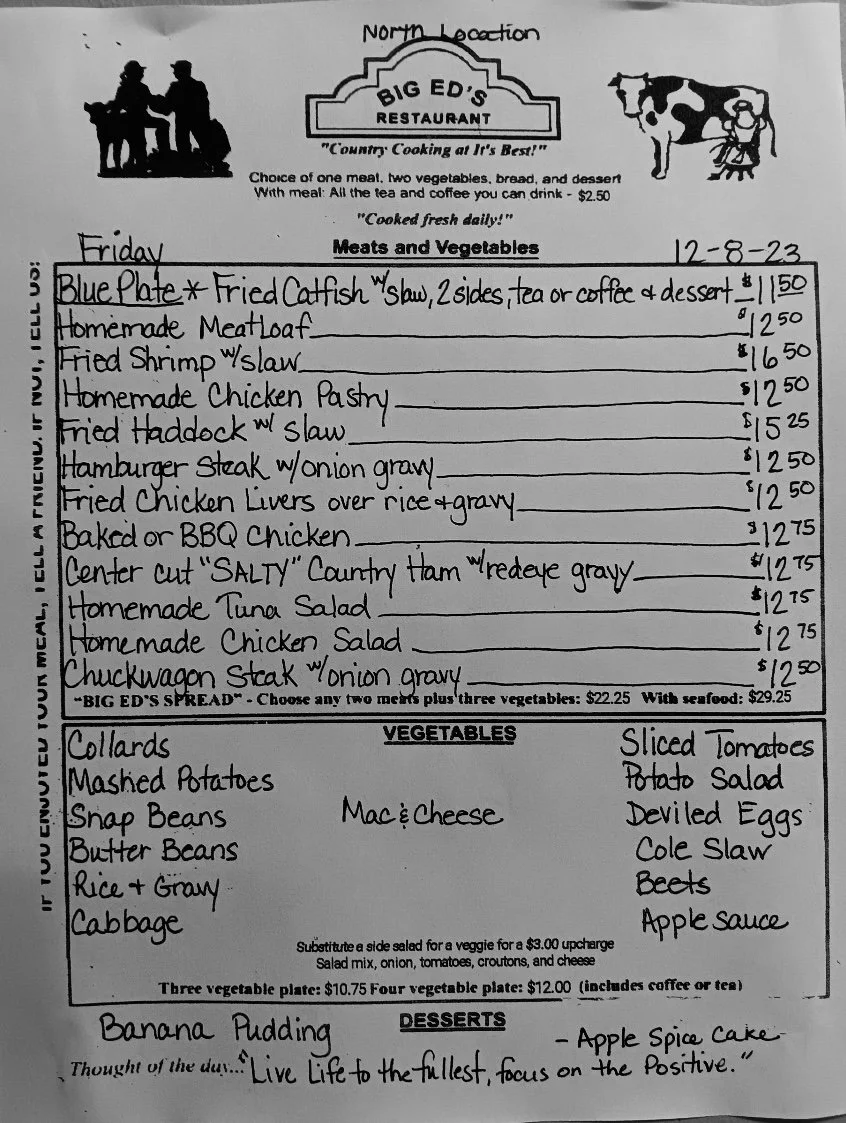 North Location
BIG ED'S
RESTAURANT
"Country Cooking at It's Best!"
Choice of one meat, two vegetables, bread, and dessert
With meal: All the tea and coffee you can drink - $2.50
"Cooked fresh daily!"
Friday Meats and Vegetables 12-8-23
Blue Plate * Fried Catfish w/slaw, 2 sides, tea or coffee & dessert $11.50
Homemade Meatloaf $12.50
Fried Shrimp w/slaw $16.50
Homemade Chicken Pastry $12.50
Fried Haddock w/ slaw $15.25
Hamburger Steak w/onion gravy $12.50
Fried Chicken Livers over rice + gravy $12.50
Baked or BBQ Chicken $12.75
Center cut "SALTY" Country Ham w/redeye gravy $12.75
Homemade Tuna Salad $12.75
Homemade Chicken Salad $12.75
Chuckwagon Steak w/onion gravy $12.50
"BIG ED'S SPREAD" - Choose any two meats plus three vegetables: $22.25 With seafood: $29.25
IF YOU ENJOYED YOUR MEAL, TELL A FRIEND. IF NOT, TELL US!
VEGETABLES
Collards Sliced Tomatoes
Mashed Potatoes Potato Salad
Snap Beans Mac & Cheese Deviled Eggs
Butter Beans Cole Slaw
Rice + Gravy Beets
Cabbage Apple Sauce
Substitute a side salad for a veggie for a $3.00 upcharge
Salad mix, onion, tomatoes, croutons, and cheese
Three vegetable plate: $10.75 Four vegetable plate: $12.00 (includes coffee or tea)
DESSERTS
Banana Pudding - Apple Spice Cake
Thought of the day... "Live Life to the fullest, focus on the Positive."